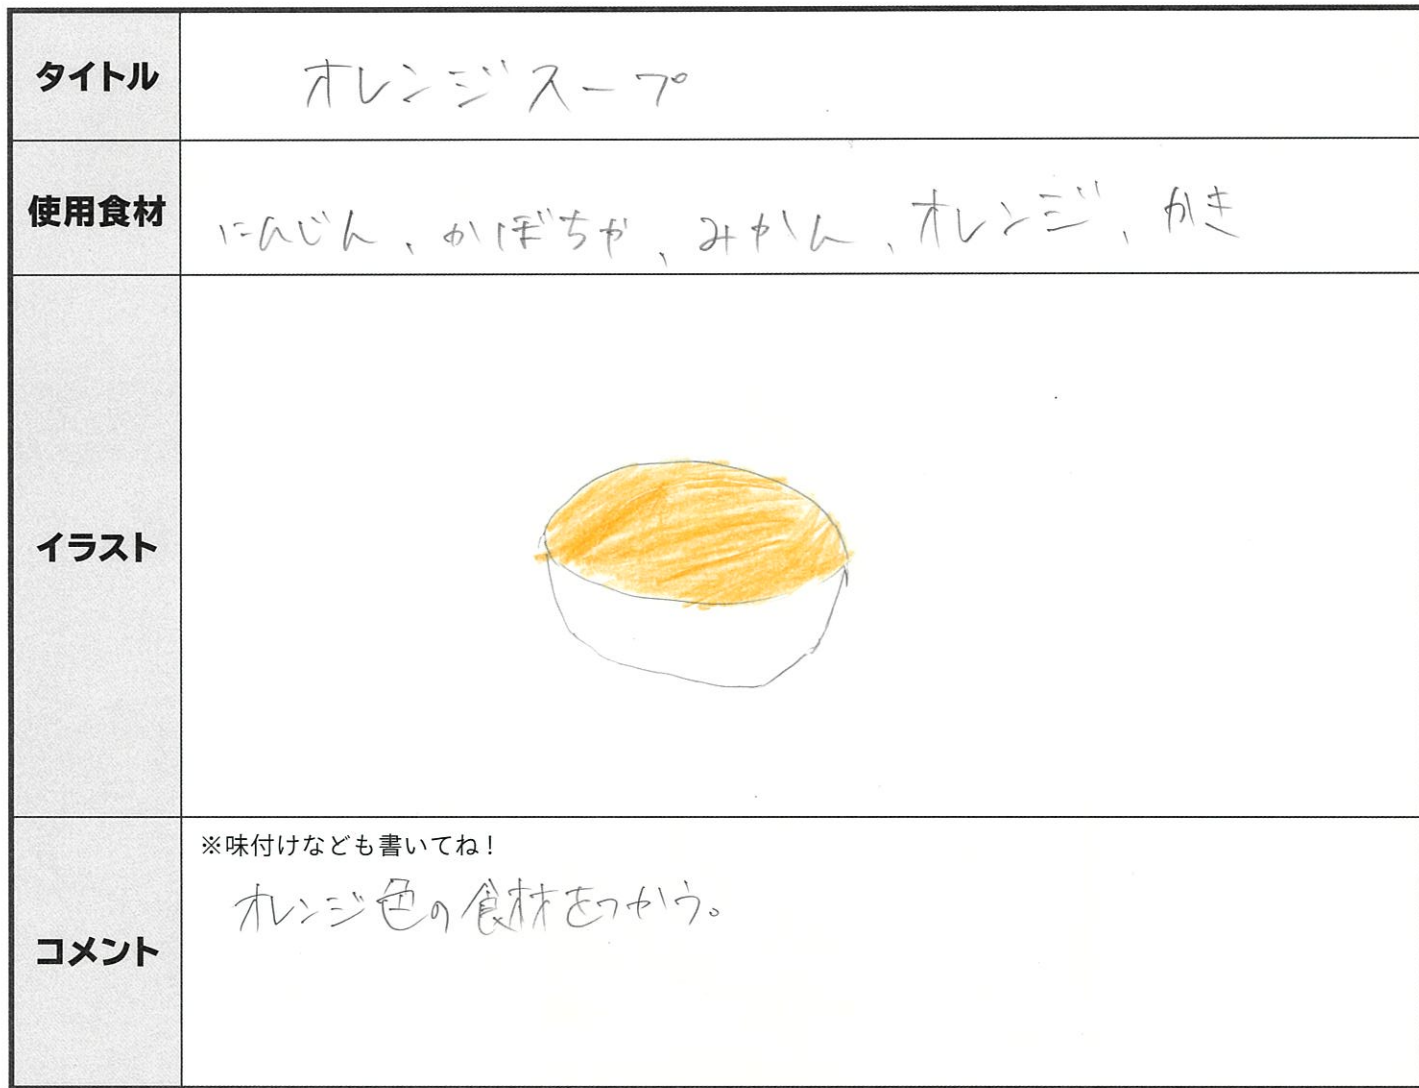 タイトル
オレンジスープ
使用食材
にんじん、かぼちゃ、みかん、オレンジ、かき
イラスト
コメント
※味付けなども書いてね！
オレンジ色の食材をつかう。